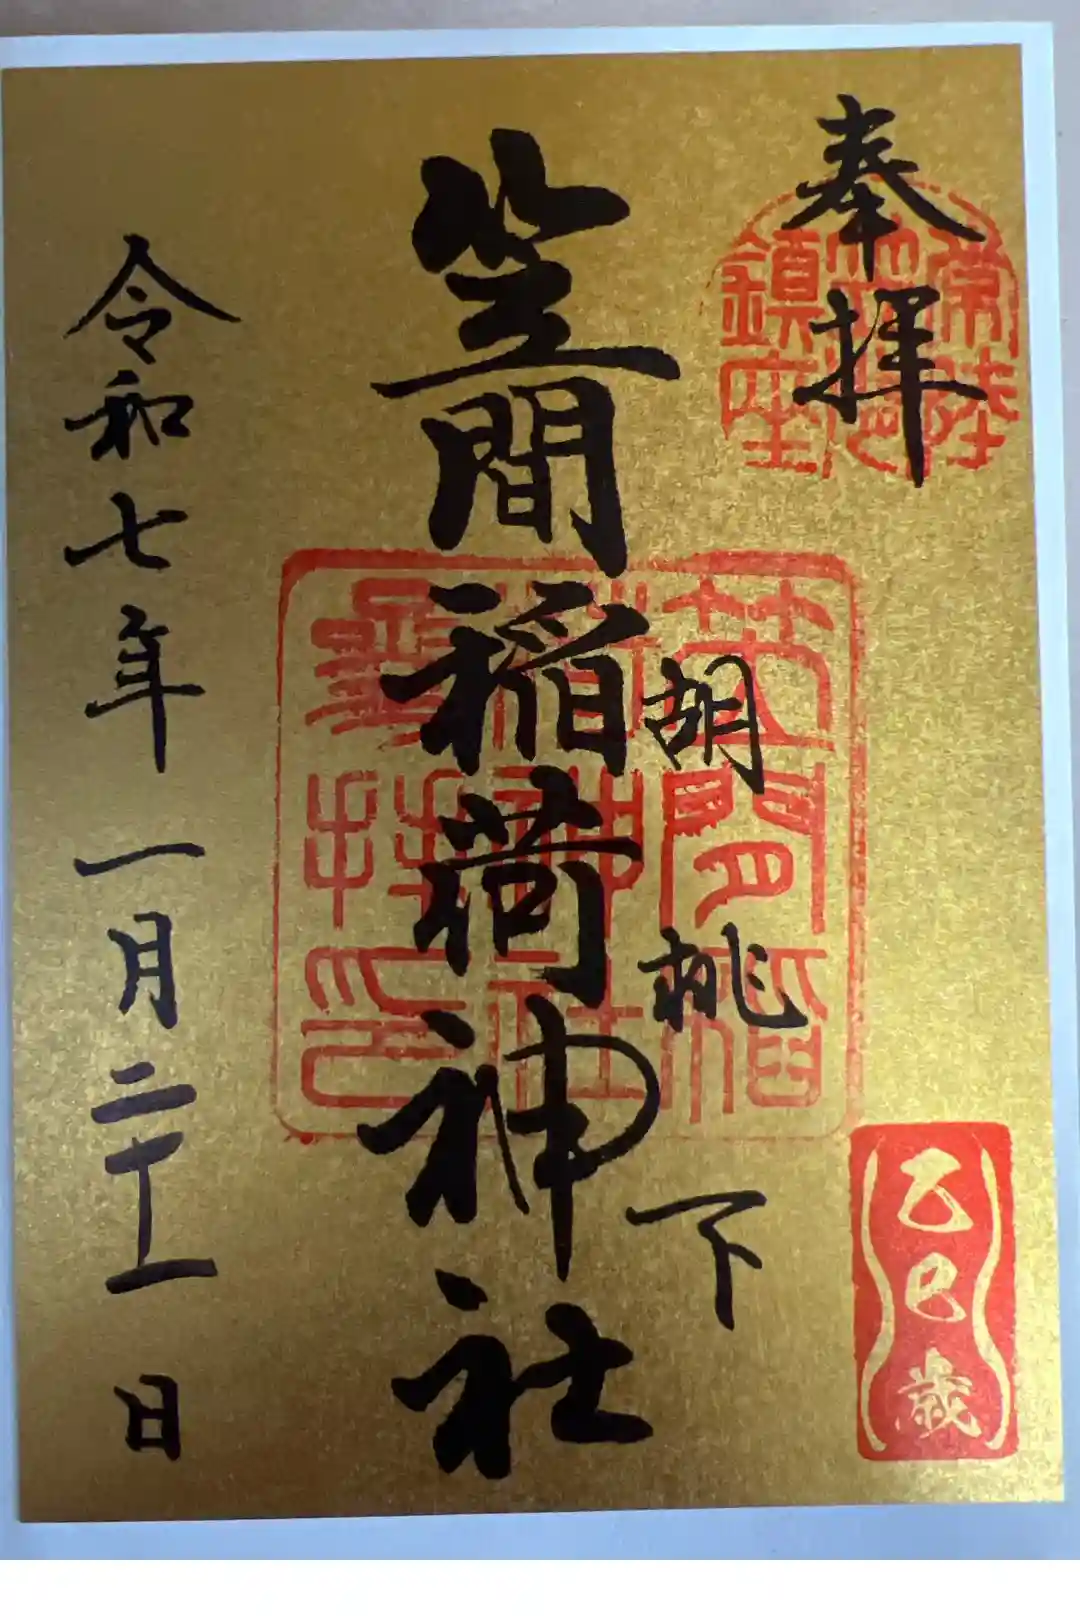 奉拝
常陸
鎮座
胡桃下
笠間稲荷神社
笠間稲
荷神社
乙巳歳
令和七年一月二十一日